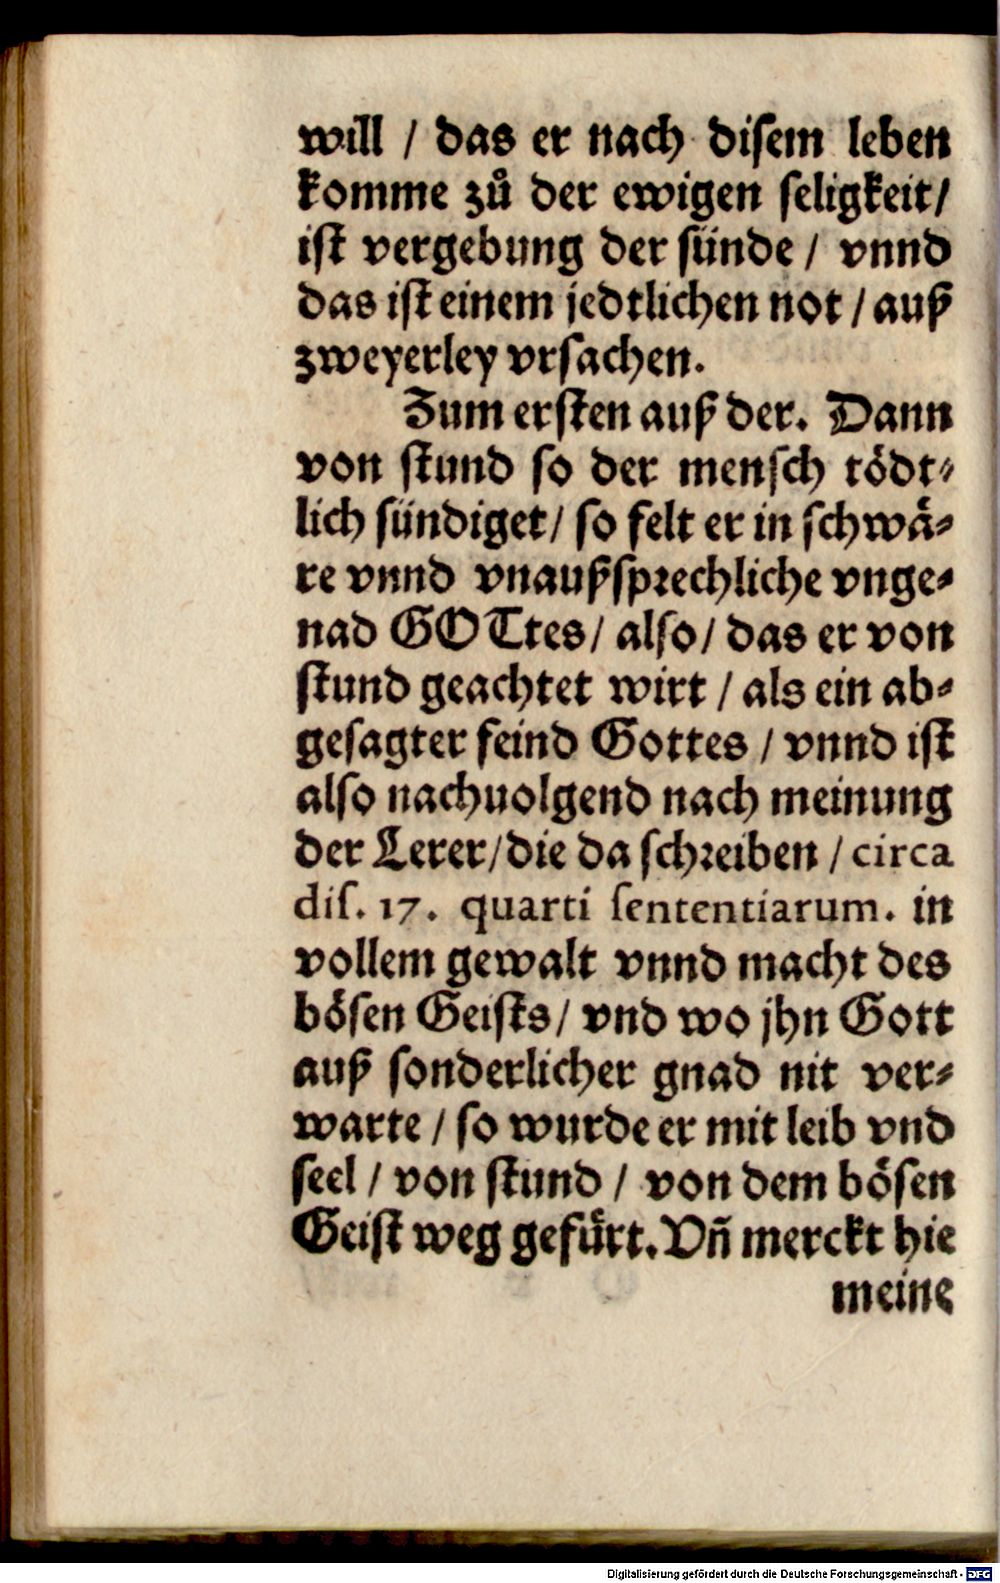 will / das er nach disem leben
komme zů der ewigen seligkeit/
ist vergebung der sünde / vnnd
das ist einem jedtlichen not / auß
zweyerley vrsachen.
Zum ersten auß der. Dann
von stund so der mensch tödt⸗
lich sündiget/ so felt er in schwä⸗
re vnnd vnaußsprechliche vnge⸗
nad GOTtes/ also/ das er von
stund geachtet wirt / als ein ab⸗
gesagter feind Gottes / vnnd ist
also nachuolgend nach meinung
der Lerer/die da schreiben / circa
dis. 17. quarti sententiarum. in
vollem gewalt vnnd macht des
bösen Geists/ vnd wo jhn Gott
auß sonderlicher gnad nit ver⸗
warte / so wurde er mit leib vnd
seel / von stund / von dem bösen
Geist weg gefürt. Vñ merckt hie
meine
Digitalisierung gefördert durch die Deutsche Forschungsgemeinschaft - DFG